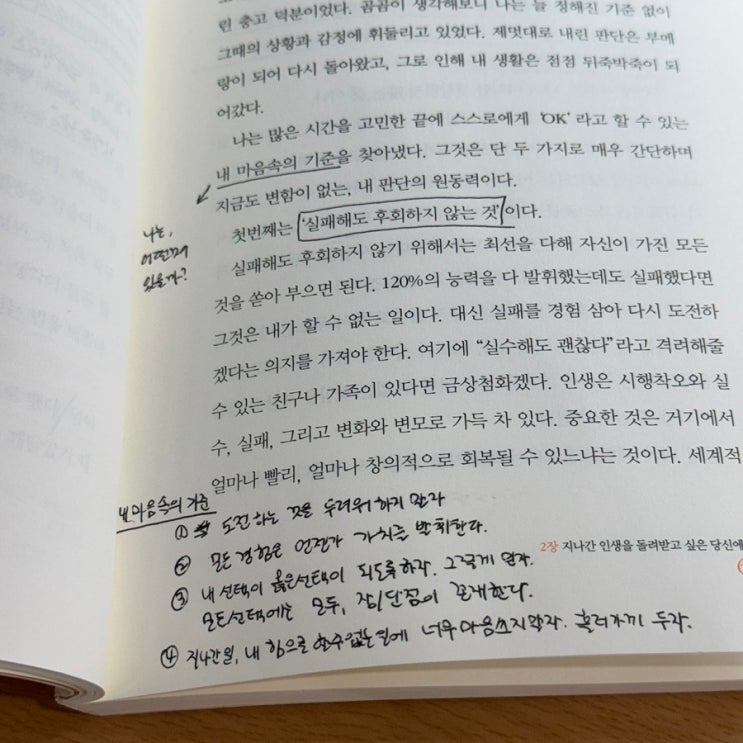 린 충고 덕분이었다. 곰곰이 생각해보니 나는 늘 정해진 기준 없이
그때의 상황과 감정에 휘둘리고 있었다. 제멋대로 내린 판단은 부메
랑이 되어 다시 돌아왔고, 그로 인해 내 생활은 점점 뒤죽박죽이 되
어갔다.
나는 많은 시간을 고민한 끝에 스스로에게 'OK' 라고 할 수 있는
내 마음속의 기준을 찾아냈다. 그것은 단 두 가지로 매우 간단하며
지금도 변함이 없는, 내 판단의 원동력이다.
첫번째는 '실패해도 후회하지 않는 것'이다.
실패해도 후회하지 않기 위해서는 최선을 다해 자신이 가진 모든
것을 쏟아 부으면 된다. 120%의 능력을 다 발휘했는데도 실패했다면
그것은 내가 할 수 없는 일이다. 대신 실패를 경험 삼아 다시 도전하
겠다는 의지를 가져야 한다. 여기에 "실수해도 괜찮다"라고 격려해줄
수 있는 친구나 가족이 있다면 금상첨화겠다. 인생은 시행착오와 실
수, 실패, 그리고 변화와 변모로 가득 차 있다. 중요한 것은 거기에서
얼마나 빨리, 얼마나 창의적으로 회복될 수 있느냐는 것이다. 세계적
나는,
있을까?
내 마음속의 기준
① 도전하는 것을 두려워 하지 말자
② 모든 경험은 언젠가 가치를 발휘한다.
③ 내 선택이 옳은선택이 되도록하자. 그렇게 믿자.
모든선택에는 모두, 장/단점이 존재한다.
④ 지나간일, 내 힘으로 할수없는 일에 너무 마음쓰지말자. 흘러가게 두자.
2장 지나간 인생을 돌려받고 싶은 당신에